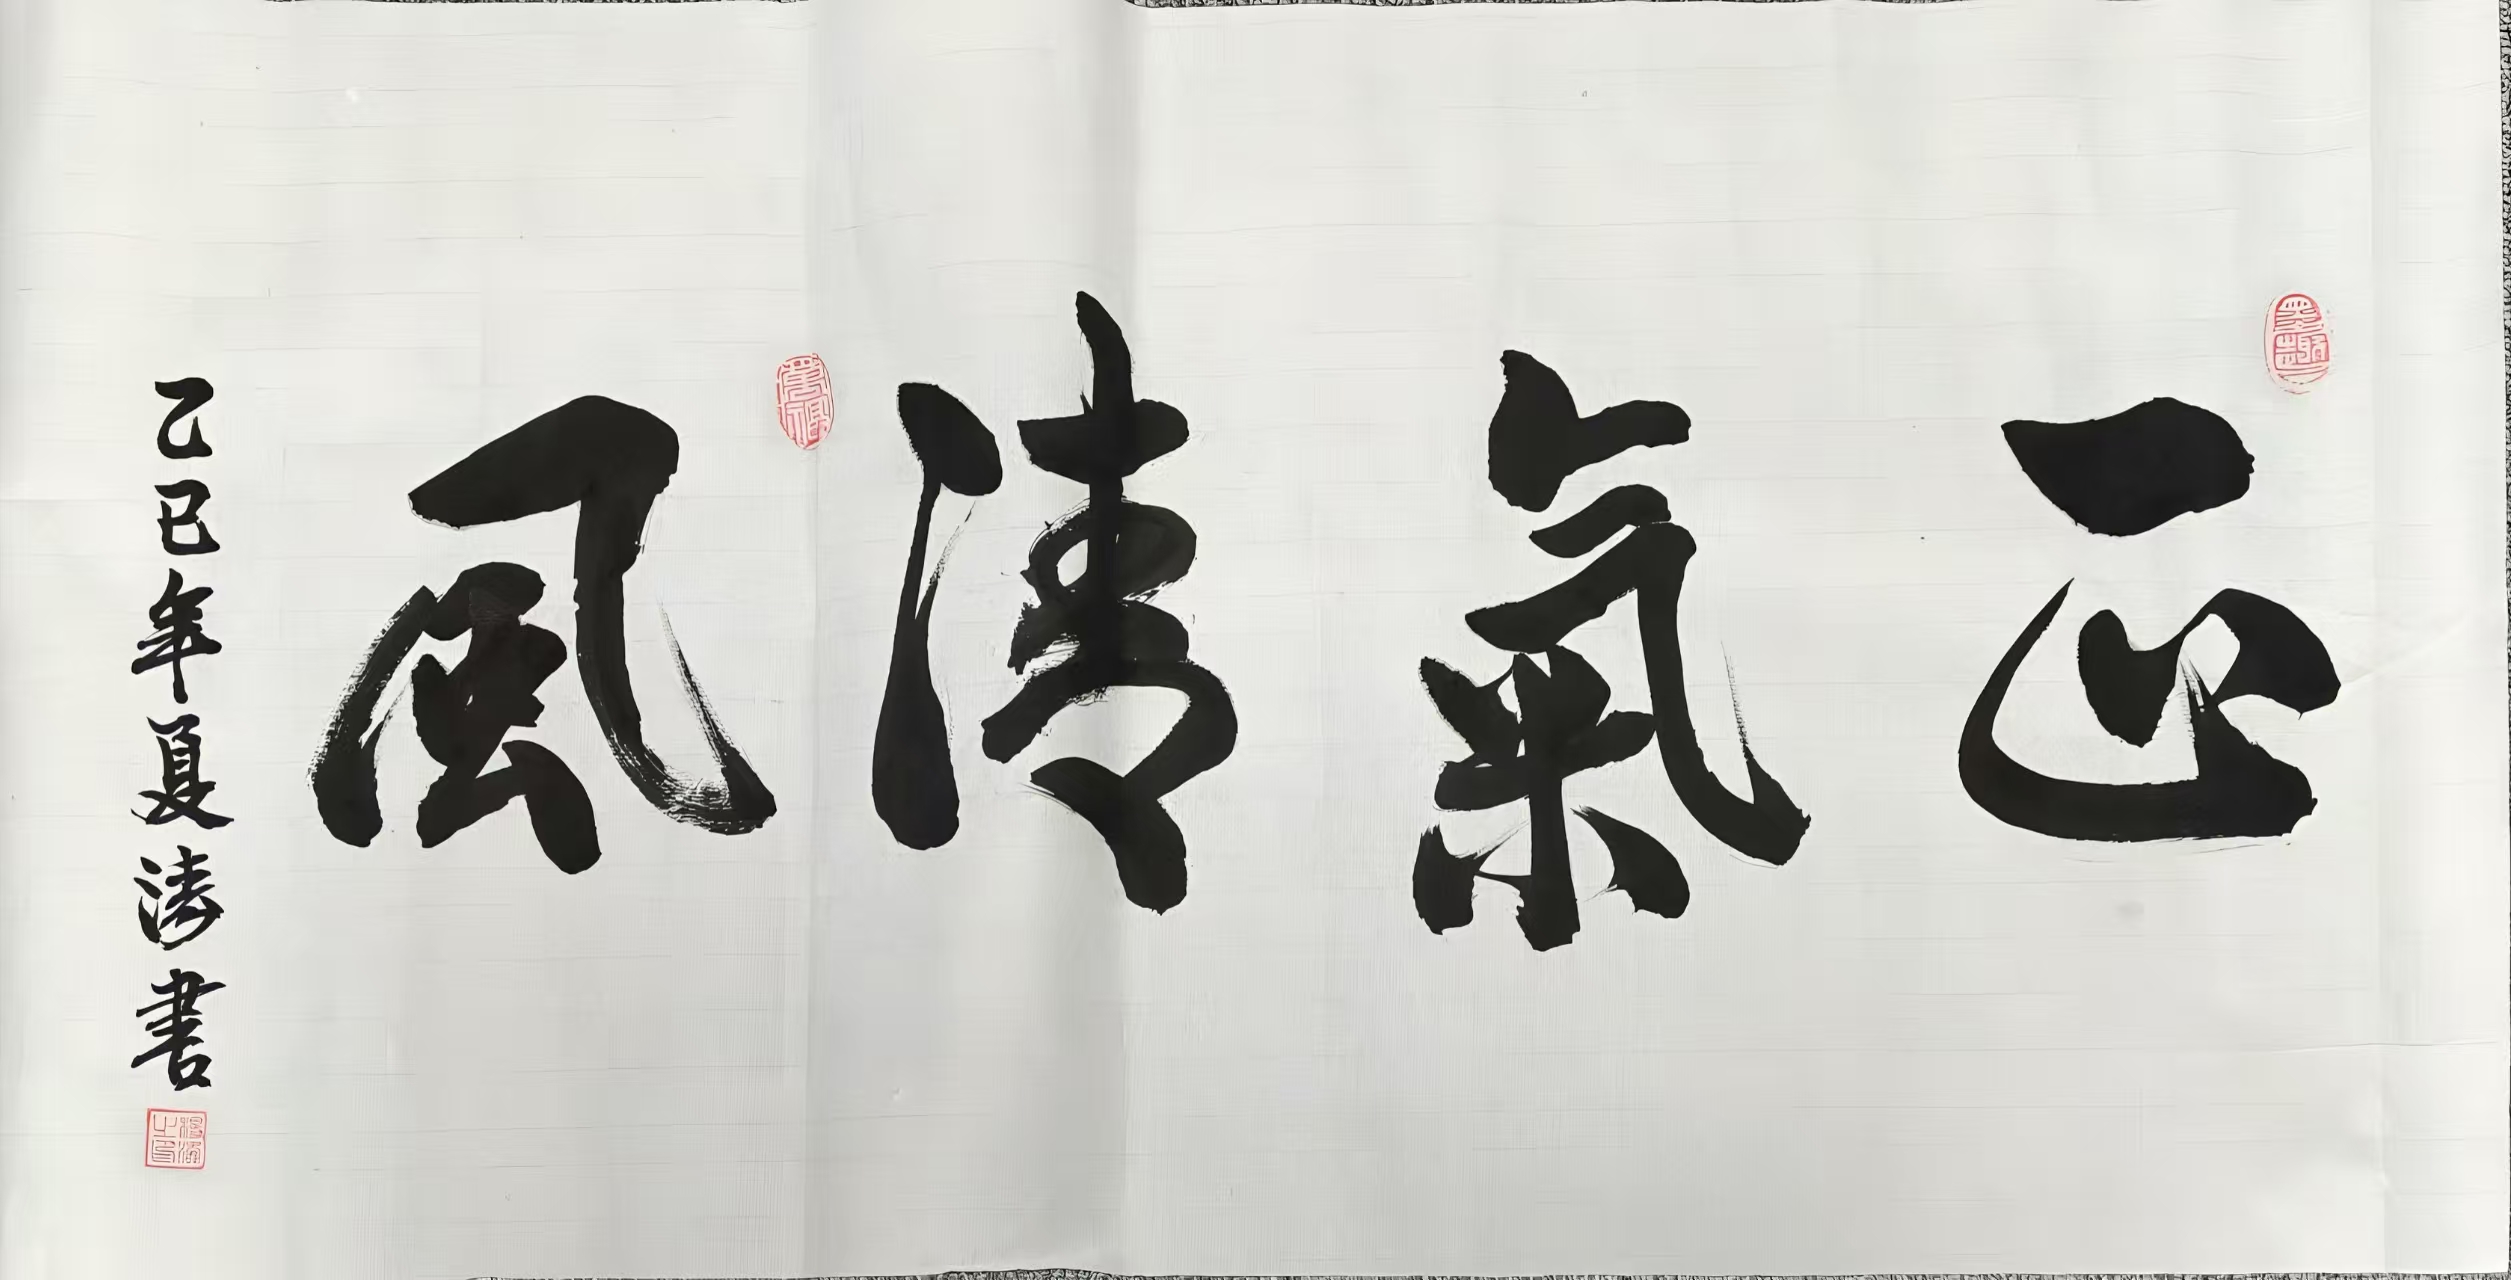 正氣清風
乙巳年夏涛書